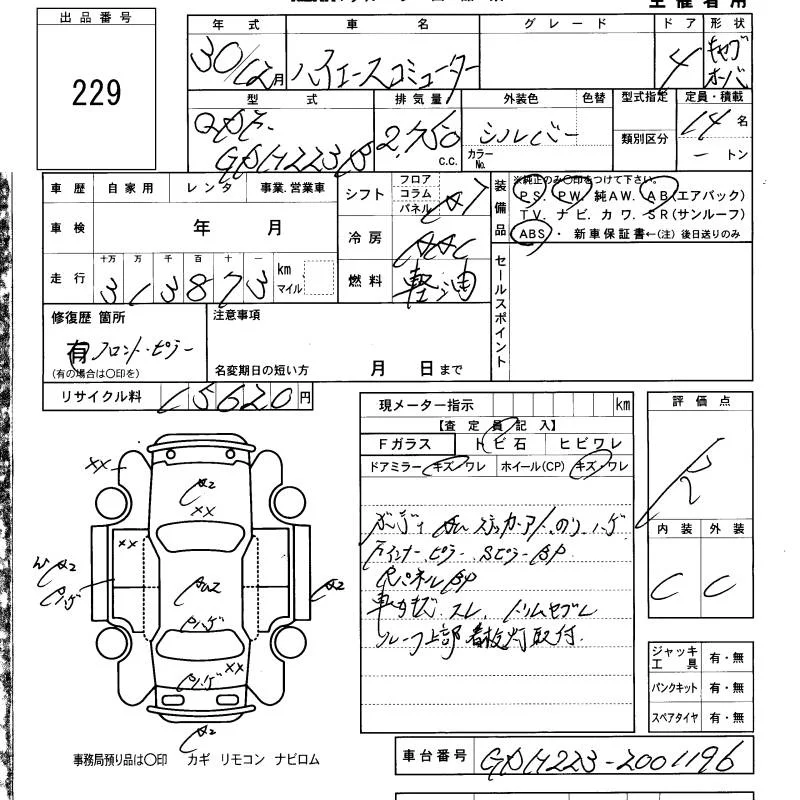 出品番号
229
年式 車名 グレード ドア 形状
30/12月 ハイエースコミューター 4 キャブオーバ
型式 排気量 外装色 色替 型式指定 定員・積載
QDF-GDH223B 2,750 c.c. シルバー カラーNo. 類別区分 14名
ートン
車歴 自家用 レンタ 事業.営業車
車検 年 月
走行 十万 万 千 百 十 一
313873 km マイル
シフト フロア コラム パネル AT
冷房 AAC
燃料 軽油
装備品
※純正のみ〇印をつけて下さい。
PS. PW. 純AW. AB(エアバック)
TV. ナビ. カワ. SR(サンルーフ)
ABS・ 新車保証書←(注)後日送りのみ
セールスポイント
修復歴 箇所
有 フロント・ピラー
(有の場合は〇印を)
注意事項
名変期日の短い方 月 日まで
リサイクル料 15620円
現メーター指示 km
【査定員記入】
Fガラス トビ石 ヒビワレ
ドアミラー キズ・ワレ ホイール(CP) キズ・ワレ
ステッカーアト.のり.ハゲ
Fインナーピラー.Sピラー BP
Rパネル BP
スレ.
ルーフ上部 看板灯取付.
評価点
R
内装 外装
C C
ジャッキ工具 有・無
パンクキット 有・無
スペアタイヤ 有・無
XX
A2
XX
XX
A2
A2
Pハゲ
XX
Pハゲ
A2
Pハゲ
A2
事務局預り品は〇印 カギ リモコン ナビロム
車台番号 GDH223-2001196